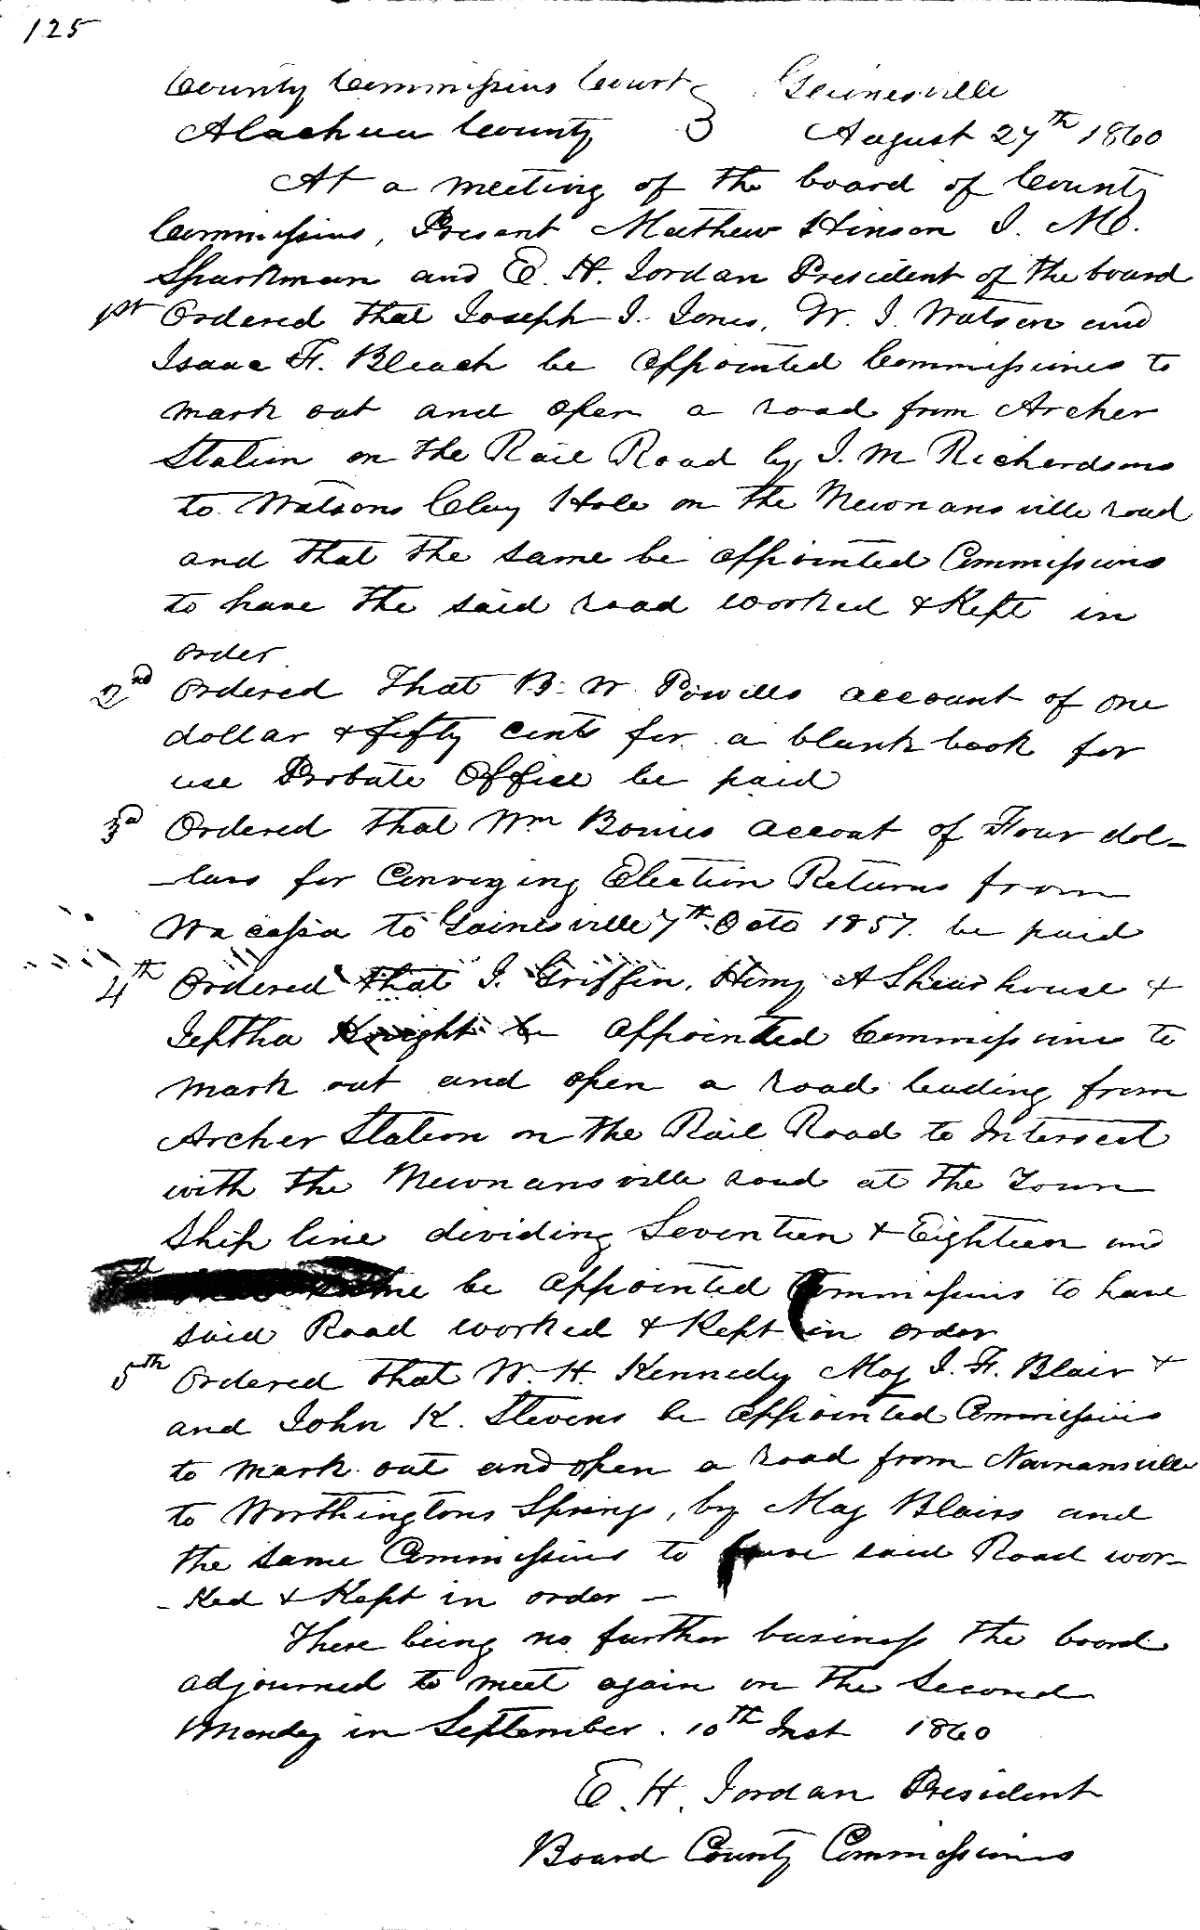 125
County Commissions Court } Gainesville
Alachua County } August 27th 1860
At a meeting of the board of County
Commissions, Present Mathew Hinson J. M.
Sparkman and E. H. Jordan President of the board
1st Ordered that Joseph J. Jones, W. J. Watson and
Isaac F. Bleach be appointed Commissiones to
mark out and open a road from Archer
Station on the Rail Road by J. M Richardsons
to Watsons Clay Hole on the Newnansville road
and that the same be appointed Commissions
to have the said road worked & Kept in
order
2nd Ordered That B. W. Powells account of one
dollar & fifty cents for a blank book for
use Probate Office be paid
3d Ordered that Wm account of Four dol-
-lars for Conveying Election Returns from
Wacassa to Gainesville 7th Octo 1857 be paid
4th Ordered that J. Griffin, Henry A Shearhouse &
Jeptha Knight be appointed Commissiones to
mark out and open a road leading from
Archer Station on the Rail Road to Intersect
with the Newnansville road at the Town
Ship line dividing Seventeen & Eighteen and
same be appointed Commissions to have
said Road worked & Kept in order
5th Ordered that W. H. Kennedy Maj J. F. Blair &
and John K. Stevens be appointed Commissions
to mark out and open a road from Newnansville
to Worthingtons Springs, by Maj Blairs and
the same Commissions to have said Road wor-
-ked & Kept in order -
There being no further business the board
adjourned to meet again on the Second
Monday in September. 10th Inst 1860
E. H. Jordan President
Board County Commissiones